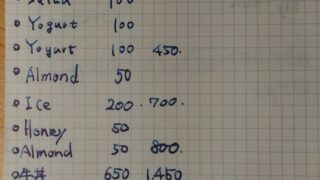 • Yogurt 100
• Yogurt 100 450.
• Almond 50
• Ice 200. 700.
• Honey 50
• Almond 50 800.
• 牛丼 650 1,450